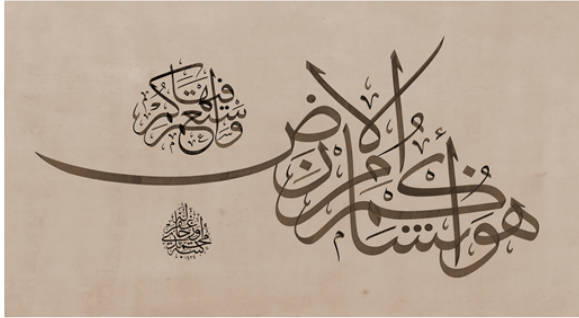 هُوَ أَنشَأَكُم مِنَ الأَرْضِ
وَاسْتَعْمَرَكُمْ فِيهَا